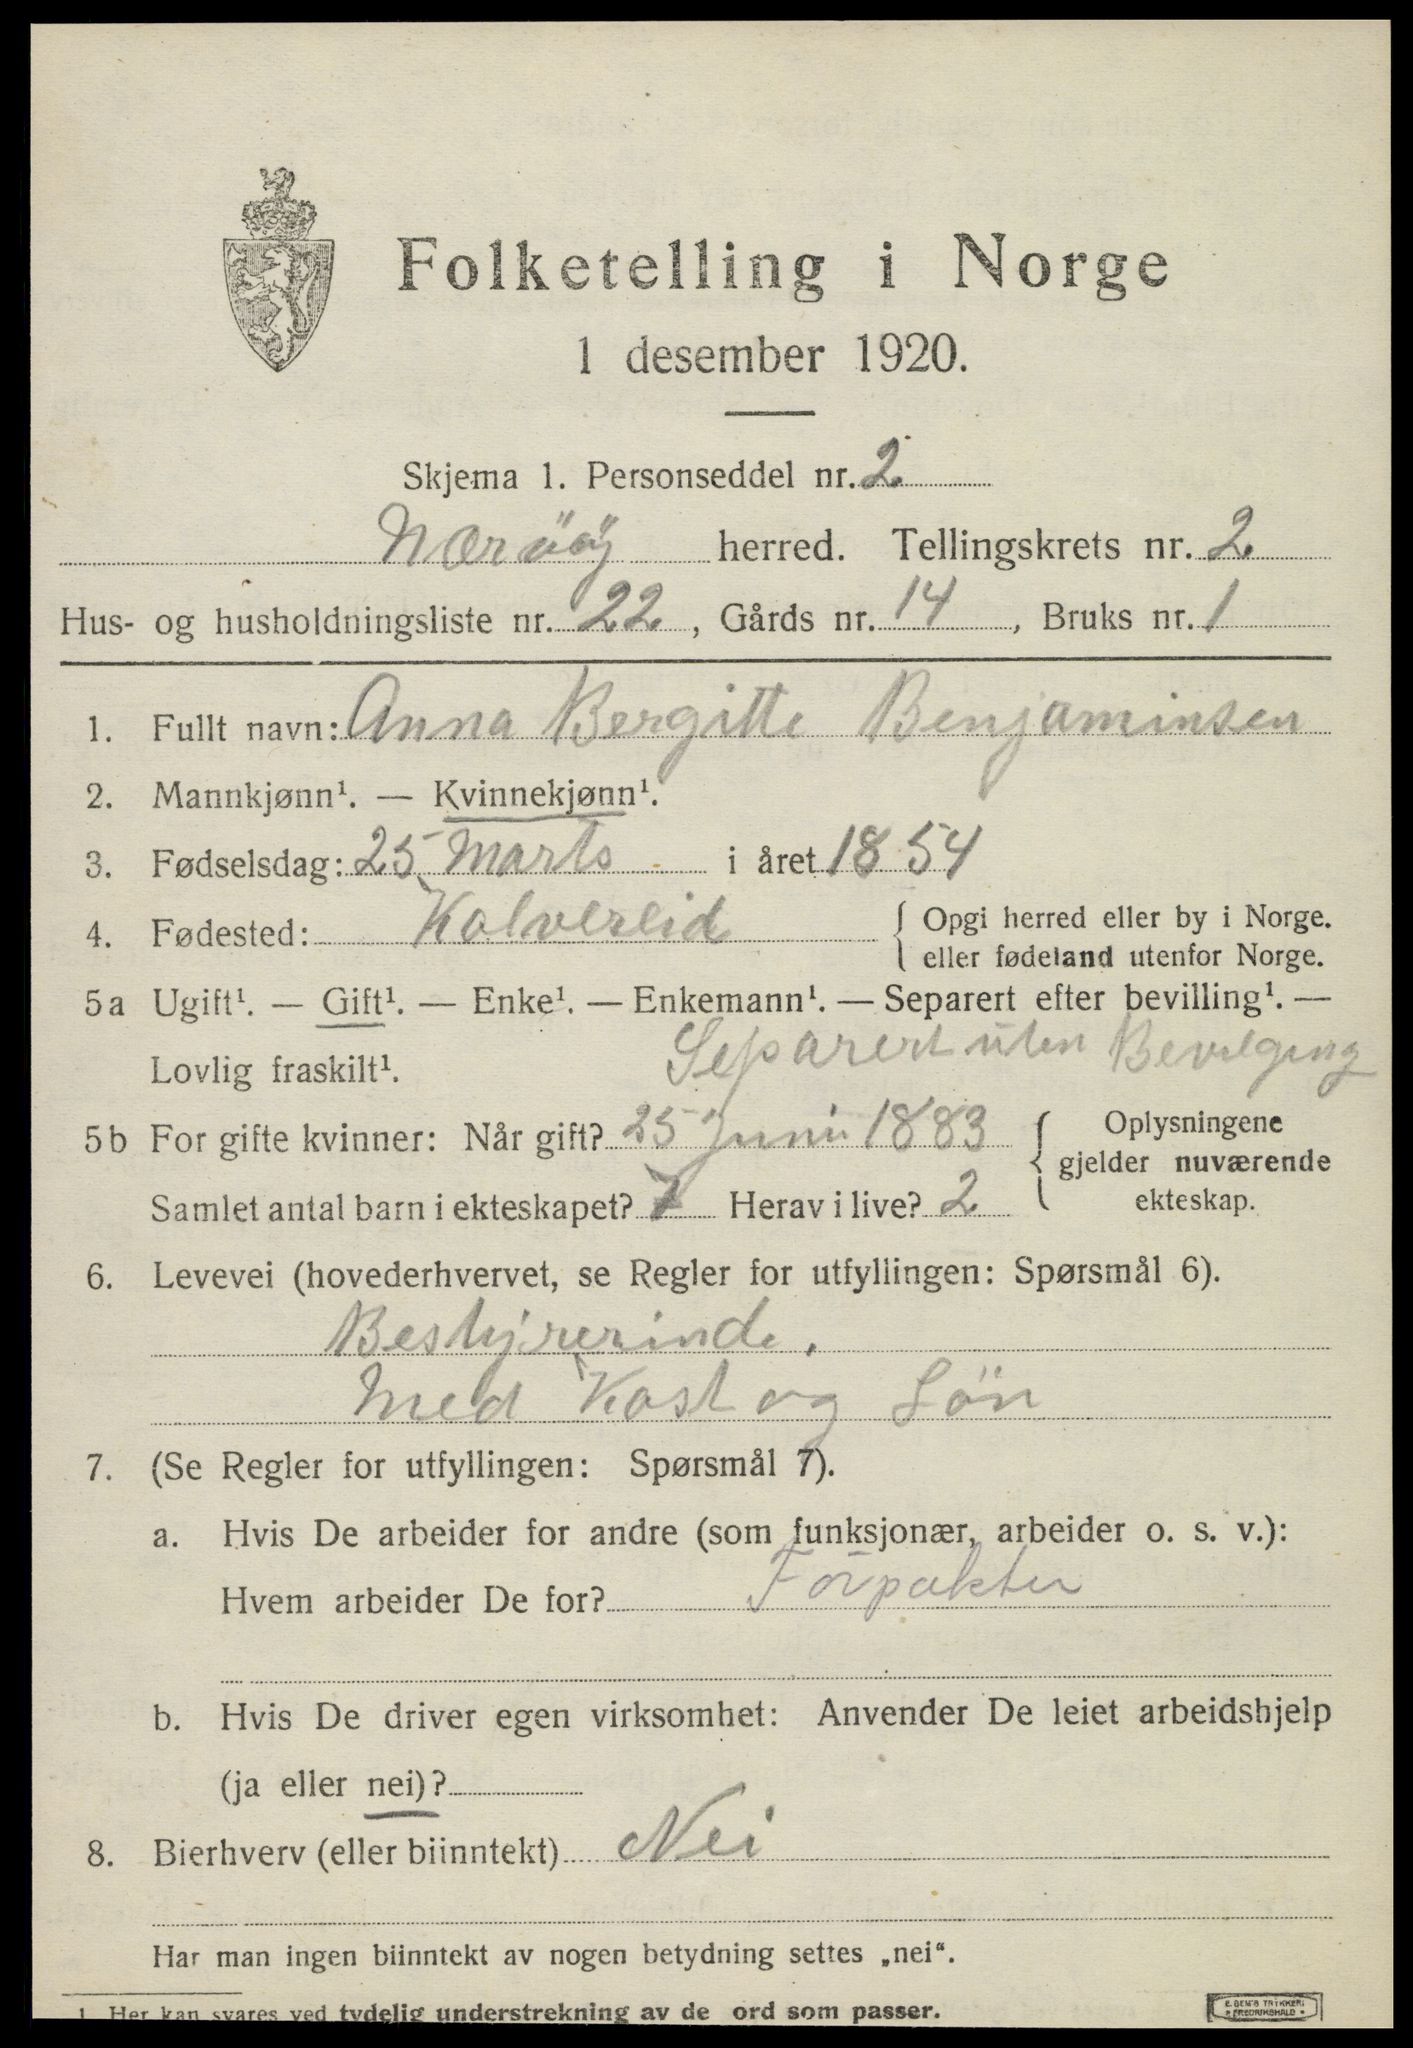 Folketelling i Norge
1 desember 1920.
Skjema 1. Personseddel nr. 2
Nærøöy herred. Tellingskrets nr. 2
Hus- og husholdningsliste nr. 22, Gårds nr. 14, Bruks nr. 1
1. Fullt navn: Anna Bergitte Benjaminsen
2. Mannkjønn¹. — Kvinnekjønn¹.
3. Fødselsdag: 25 Marts i året 1854
4. Fødested: Kolvereid { Opgi herred eller by i Norge.
eller fødeland utenfor Norge.
5a Ugift¹. — Gift¹. — Enke¹. — Enkemann¹. — Separert efter bevilling¹. —
Lovlig fraskilt¹. Separert uten Bevilging
5b For gifte kvinner: Når gift? 25 Juni 1883 { Oplysningene
gjelder nuværende
Samlet antal barn i ekteskapet? 7 Herav i live? 2 ekteskap.
6. Levevei (hovederhvervet, se Regler for utfyllingen: Spørsmål 6).
Bestyrerinde.
Med Kost og Lön
7. (Se Regler for utfyllingen: Spørsmål 7).
a. Hvis De arbeider for andre (som funksjonær, arbeider o. s. v.):
Hvem arbeider De for? Forpakter
b. Hvis De driver egen virksomhet: Anvender De leiet arbeidshjelp
(ja eller nei)?
8. Bierhverv (eller biinntekt) Nei
Har man ingen biinntekt av nogen betydning settes „nei“.
1. Her kan svares ved tydelig understrekning av de ord som passer.